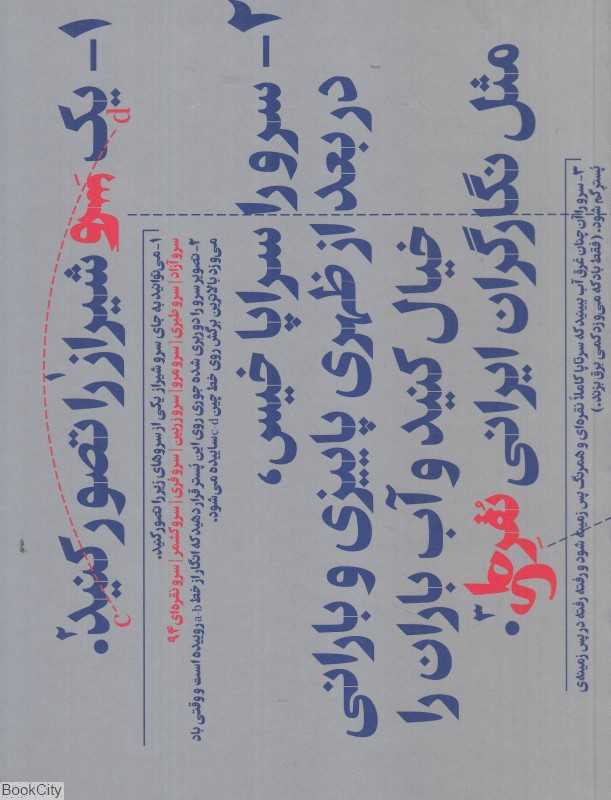 ۱- یک سرو شیراز۱ را تصور کنید۲.
d
c
۱- می‌توانید به جای سرو شیراز یکی از سروهای زیر را تصور کنید.
سرو آزاد | سرو طبری | سرو مرو | سرو زربین | سرو فری | سرو کشمر | سرو نقره‌ای ۹۴
۲- تصویر سرو را دوربری شده جوری روی این بَستر قرار دهید که انگار از خط a-b روییده است و وقتی باد
می‌وزد بالاترین برگش روی خط چین c-d ساییده می‌شود.
۲- سرو را سراپا خیس،
در بعد از ظهری پاییزی و بارانی
خیال کنید و آب باران را
مثل نگارگران ایرانی نُقره‌ای۳.
۳- سرو را آن چنان غرق آب ببینید که سرتاپا کاملاً نقره‌ای و همرنگ پس زمینه شود و رفته رفته در پس زمینه‌ی
بَستر گم شود. (فقط باد که می‌وزد کمی برق بزند.)
BookCity